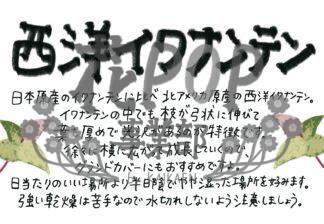 西洋イワナンテン
日本原産のイワナンテンにくらべ 北アメリカ原産の西洋イワナンテン。
イワナンテンの中でも、枝が弓状に伸びて
葉も厚めで光沢があるのが特徴です。
徐々に横に広がり成長していくので、
グランドカバーにもおすすめですよ。
日当たりのいい場所より半日陰でやや湿った場所を好みます。
強い乾燥は苦手なので水切れしないよう注意しましょう。
花POP